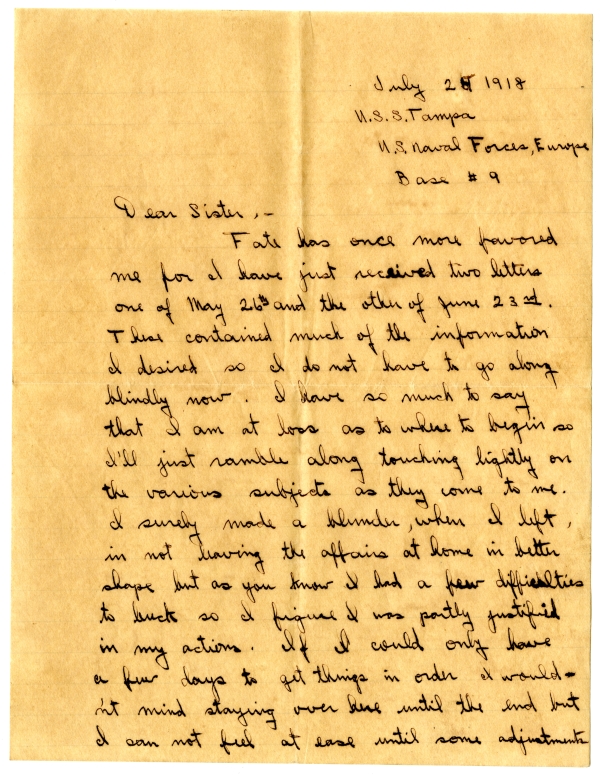 July 28 1918
U.S.S. Tampa
U.S. Naval Forces, Europe
Base # 9
Dear Sister, -
Fate has once more favored
me for I have just received two letters
one of May 26th and the other of June 23rd.
These contained much of the information
I desired so I do not have to go along
blindly now. I have so much to say
that I am at loss as to where to begin so
I'll just ramble along touching lightly on
the various subjects as they come to me.
I surely made a blunder, when I left,
in not leaving the affairs at home in better
shape but as you know I had a few difficulties
to buck so I figure I was partly justified
in my actions. If I could only have
a few days to get things in order I would-
n't mind staying over here until the end but
I can not feel at ease until some adjustments